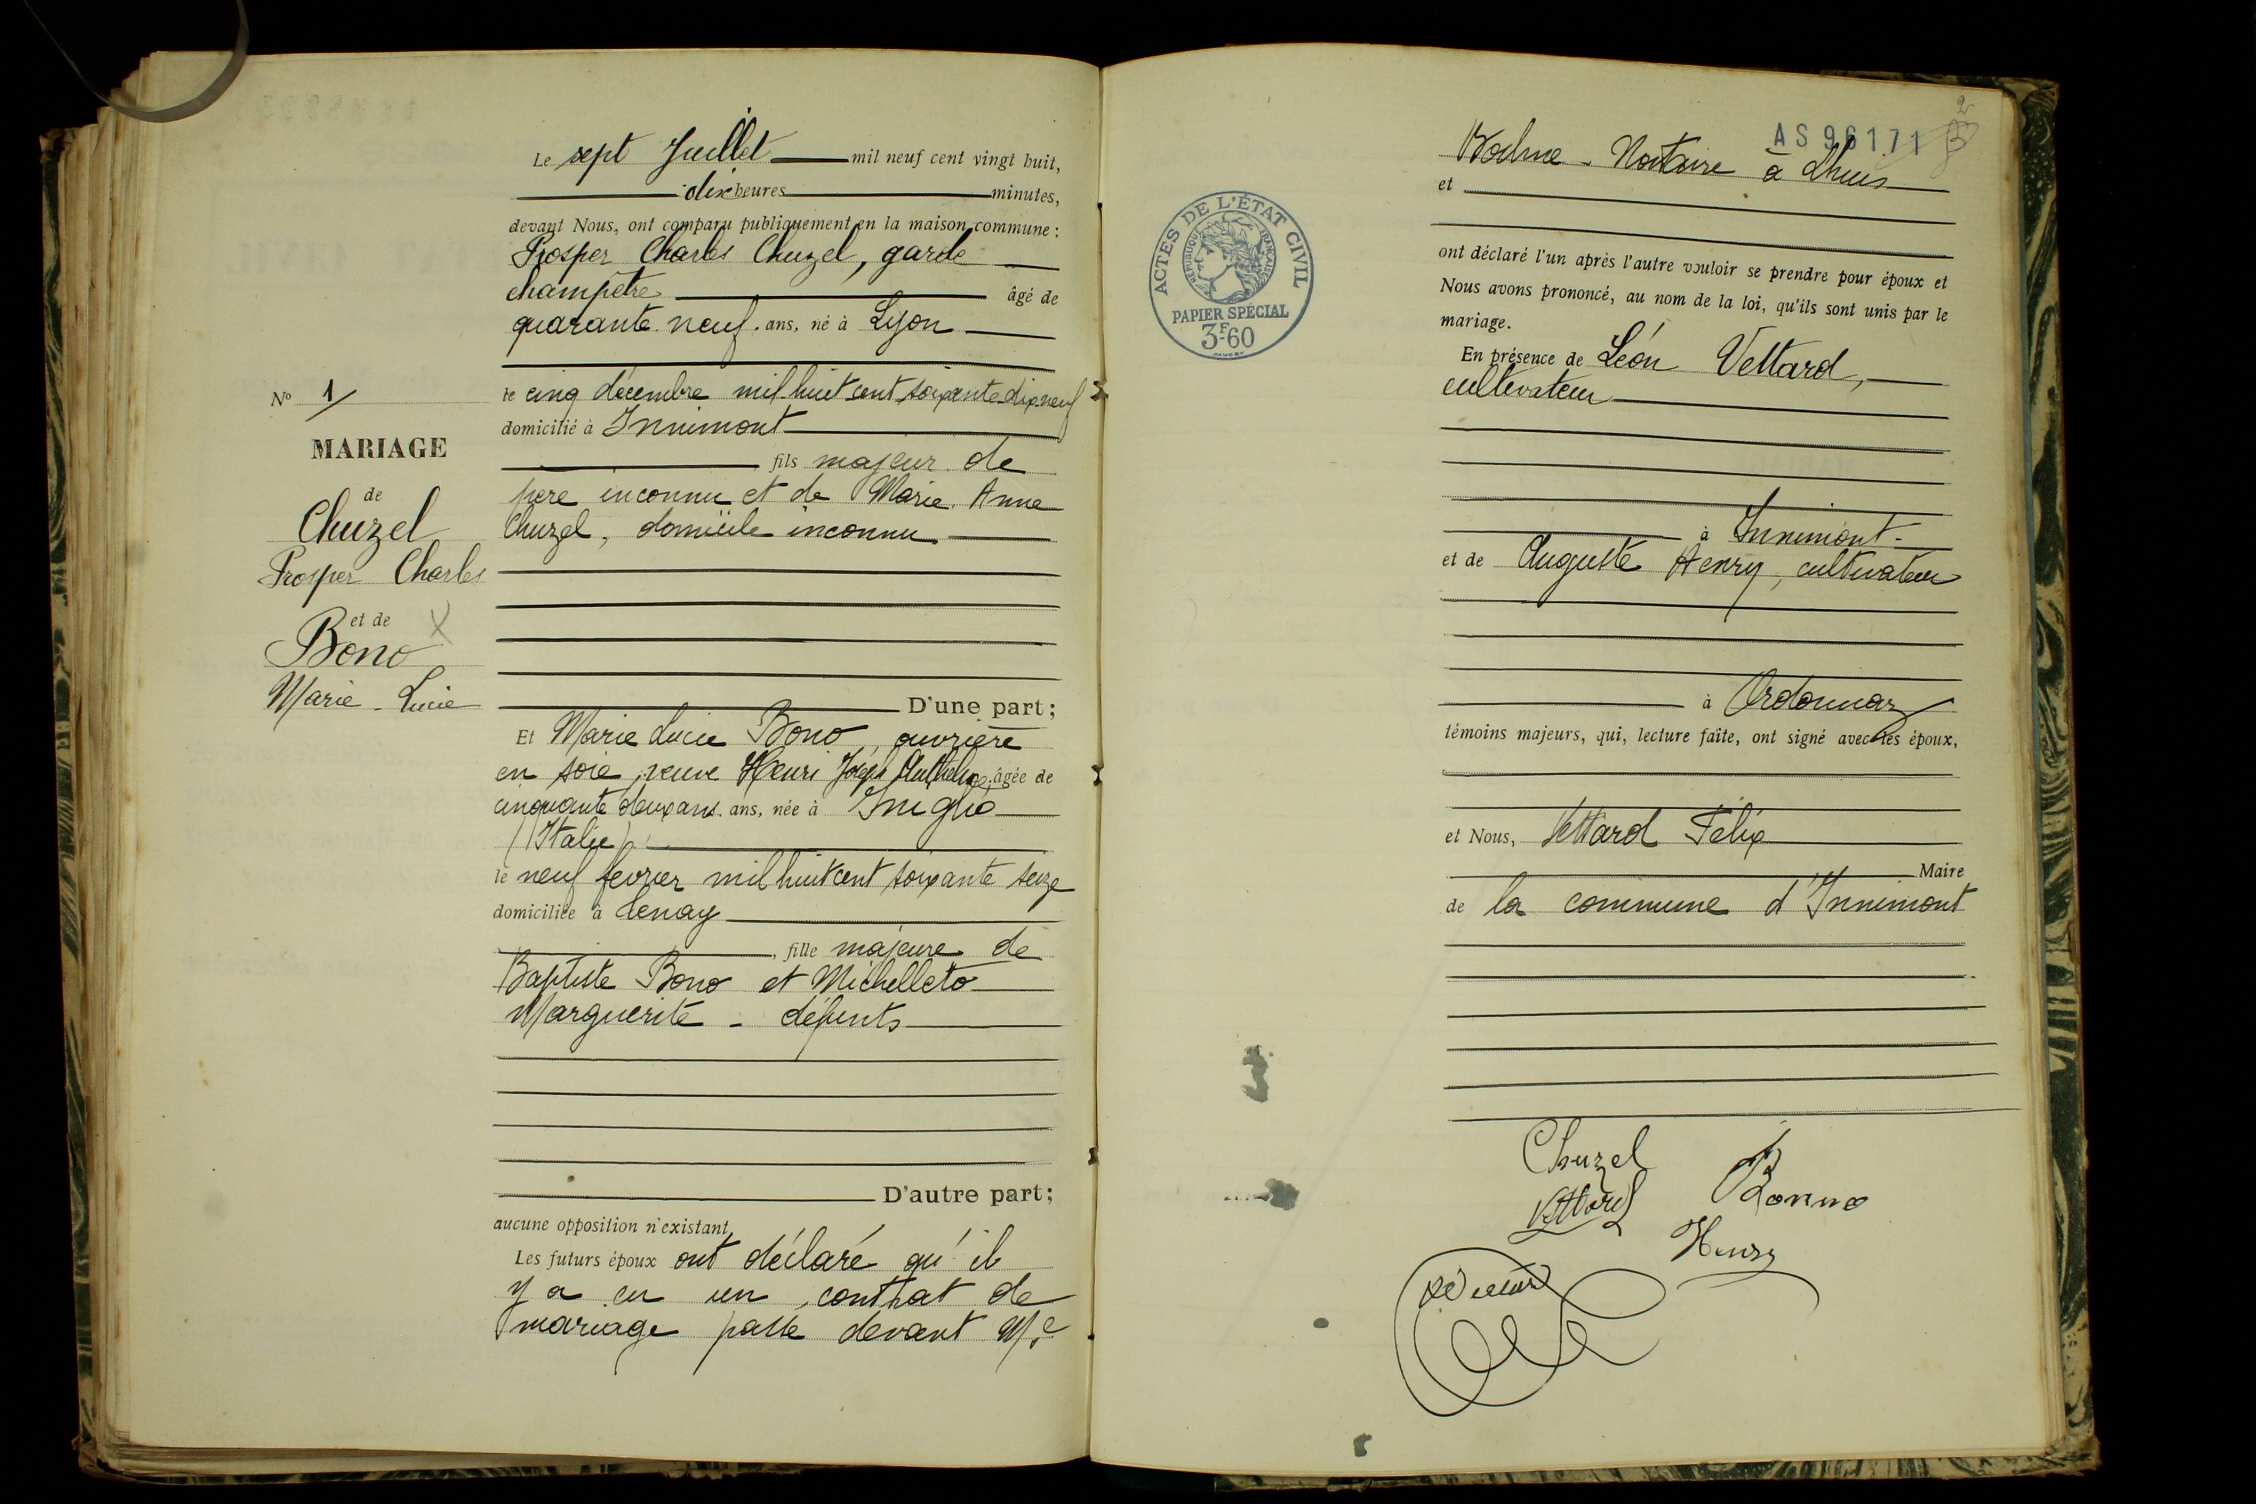 N° 1/
MARIAGE
de
Chuzel
Prosper Charles
et de
Bono
Marie - Lucie
Le sept Juillet mil neuf cent vingt huit,
dix heures minutes,
devant Nous, ont comparu publiquement en la maison commune :
Prosper Charles Chuzel, garde
champêtre âgé de
quarante neuf ans, né à Lyon
le cinq décembre mil huit cent soixante dix neuf
domicilié à Innimont
fils majeur de
père inconnu et de Marie Anne
Chuzel, domicile inconnu
D'une part ;
Et Marie Lucie Bono, ouvrière
en soie, veuve Henri Joseph âgée de
cinquante deux ans. ans, née à
(Italie)
le neuf fevrier mil huit cent soixante seize
domiciliée à Tenay
, fille majeure de
Baptiste Bono et Michelleto
Marguerite - défunts
D'autre part ;
aucune opposition n'existant,
Les futurs époux ont déclaré qu'il
y a eu un contrat de
mariage passé devant Me
AS 96171
2
Notaire à Lhuis
et
ont déclaré l'un après l'autre vouloir se prendre pour époux et
Nous avons prononcé, au nom de la loi, qu'ils sont unis par le
mariage.
En présence de Léon Vettard,
cultivateur
à Innimont -
et de Auguste Henry, cultivateur
à Ordonnaz
témoins majeurs, qui, lecture faite, ont signé avec les époux,
et Nous, Vettard Félix
Maire
de la commune d'Innimont
Chuzel
Bonno
Vettard
Henry
ACTES DE L'ÉTAT CIVIL
RÉPUBLIQUE FRANÇAISE
PAPIER SPÉCIAL
3F60